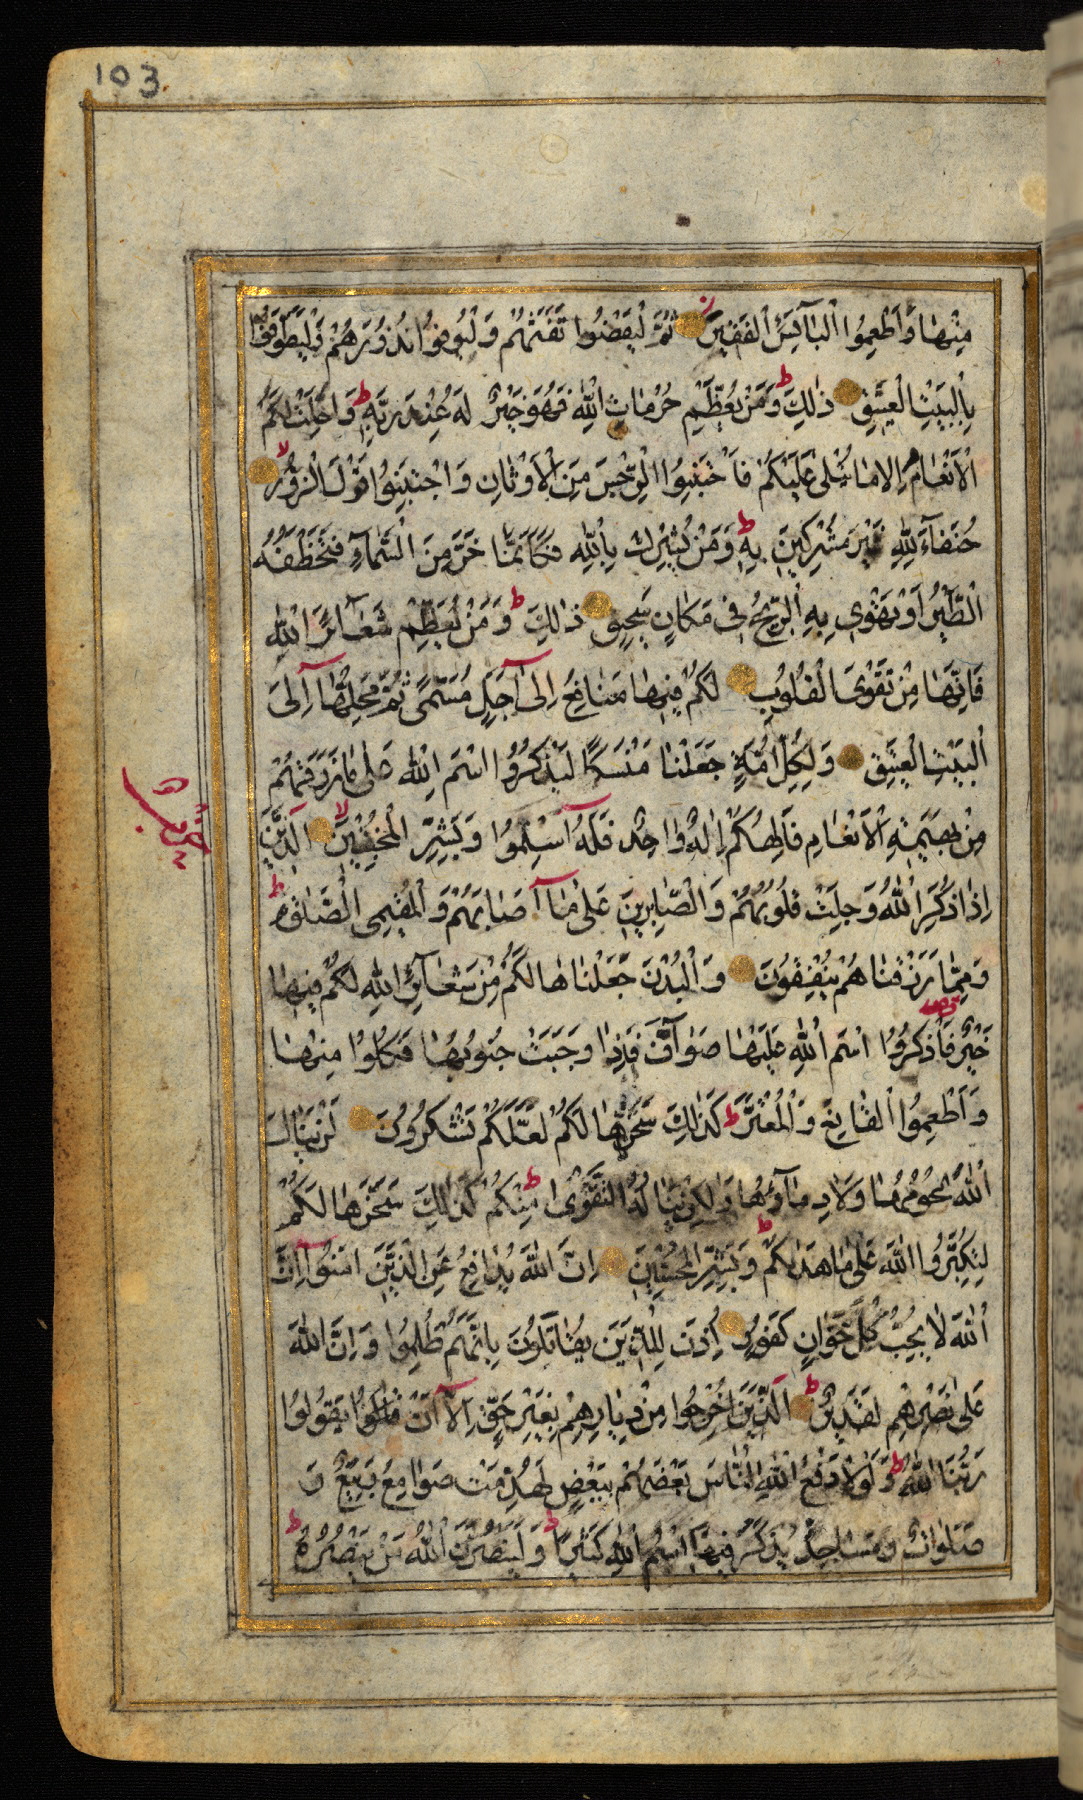 103
مِنْهَا وَاَطْعِمُوا الْبَآئِسَ الْفَقِيرَ ثُمَّ لْيَقْضُوا تَفَثَهُمْ وَلْيُوفُوا نُذُورَهُمْ وَلْيَطَّوَّفُوا
بِالْبَيْتِ الْعَتِيقِ ذٰلِكَ ط وَمَنْ يُعَظِّمْ حُرُمَاتِ اللّٰهِ فَهُوَ خَيْرٌ لَهُ عِنْدَ رَبِّهِ ط وَاُحِلَّتْ لَكُمُ
الْاَنْعَامُ اِلَّا مَا يُتْلٰى عَلَيْكُمْ فَاجْتَنِبُوا الرِّجْسَ مِنَ الْاَوْثَانِ وَاجْتَنِبُوا قَوْلَ الزُّورِ لا
حُنَفَآءَ لِلّٰهِ غَيْرَ مُشْرِكِينَ بِهِ ط وَمَنْ يُشْرِكْ بِاللّٰهِ فَكَاَنَّمَا خَرَّ مِنَ السَّمَآءِ فَتَخْطَفُهُ
الطَّيْرُ اَوْ تَهْوِي بِهِ الرِّيحُ فِي مَكَانٍ سَحِيقٍ ذٰلِكَ ط وَمَنْ يُعَظِّمْ شَعَآئِرَ اللّٰهِ
فَاِنَّهَا مِنْ تَقْوَى الْقُلُوبِ لَكُمْ فِيهَا مَنَافِعُ اِلٰٓى اَجَلٍ مُسَمًّى ثُمَّ مَحِلُّهَآ اِلَى
الْبَيْتِ الْعَتِيقِ وَلِكُلِّ اُمَّةٍ جَعَلْنَا مَنْسَكًا لِيَذْكُرُوا اسْمَ اللّٰهِ عَلٰى مَا رَزَقَهُمْ
مِنْ بَهِيمَةِ الْاَنْعَامِ فَاِلٰهُكُمْ اِلٰهٌ وَاحِدٌ فَلَهُٓ اَسْلِمُوا وَبَشِّرِ الْمُخْبِتِينَ لا الَّذِينَ
اِذَا ذُكِرَ اللّٰهُ وَجِلَتْ قُلُوبُهُمْ وَالصَّابِرِينَ عَلٰى مَآ اَصَابَهُمْ وَالْمُقِيمِي الصَّلٰوةِ ط
وَمِمَّا رَزَقْنَاهُمْ يُنْفِقُونَ وَالْبُدْنَ جَعَلْنَاهَا لَكُمْ مِنْ شَعَآئِرِ اللّٰهِ لَكُمْ فِيهَا
خَيْرٌ فَاذْكُرُوا اسْمَ اللّٰهِ عَلَيْهَا صَوَآفَّ فَاِذَا وَجَبَتْ جُنُوبُهَا فَكُلُوا مِنْهَا
وَاَطْعِمُوا الْقَانِعَ وَالْمُعْتَرَّ ط كَذٰلِكَ سَخَّرْنَاهَا لَكُمْ لَعَلَّكُمْ تَشْكُرُونَ لَنْ يَنَالَ
اللّٰهَ لُحُومُهَا وَلَا دِمَآؤُهَا وَلٰكِنْ يَنَالُهُ التَّقْوٰى مِنْكُمْ ط كَذٰلِكَ سَخَّرَهَا لَكُمْ
لِتُكَبِّرُوا اللّٰهَ عَلٰى مَا هَدٰىكُمْ ط وَبَشِّرِ الْمُحْسِنِينَ اِنَّ اللّٰهَ يُدَافِعُ عَنِ الَّذِينَ اٰمَنُوٓا اِنَّ
اللّٰهَ لَا يُحِبُّ كُلَّ خَوَّانٍ كَفُورٍ اُذِنَ لِلَّذِينَ يُقَاتَلُونَ بِاَنَّهُمْ ظُلِمُوا وَاِنَّ اللّٰهَ
عَلٰى نَصْرِهِمْ لَقَدِيرٌ ط الَّذِينَ اُخْرِجُوا مِنْ دِيَارِهِمْ بِغَيْرِ حَقٍّ اِلَّآ اَنْ يَقُولُوا
رَبُّنَا اللّٰهُ ط وَلَوْلَا دَفْعُ اللّٰهِ النَّاسَ بَعْضَهُمْ بِبَعْضٍ لَهُدِّمَتْ صَوَامِعُ وَبِيَعٌ وَ
صَلَوَاتٌ وَمَسَاجِدُ يُذْكَرُ فِيهَا اسْمُ اللّٰهِ كَثِيرًا ط وَلَيَنْصُرَنَّ اللّٰهُ مَنْ يَنْصُرُهُ ط